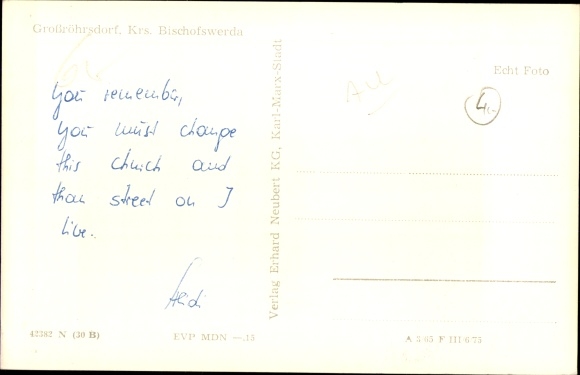 Großröhrsdorf, Krs. Bischofswerda
You remember,
you must change
this church and
than street on I
live.
Heidi
Verlag Erhard Neubert KG, Karl-Marx-Stadt
Echt Foto
4,-
42382 N (30 B)
EVP MDN —.15
A 3/65 F III-6-75